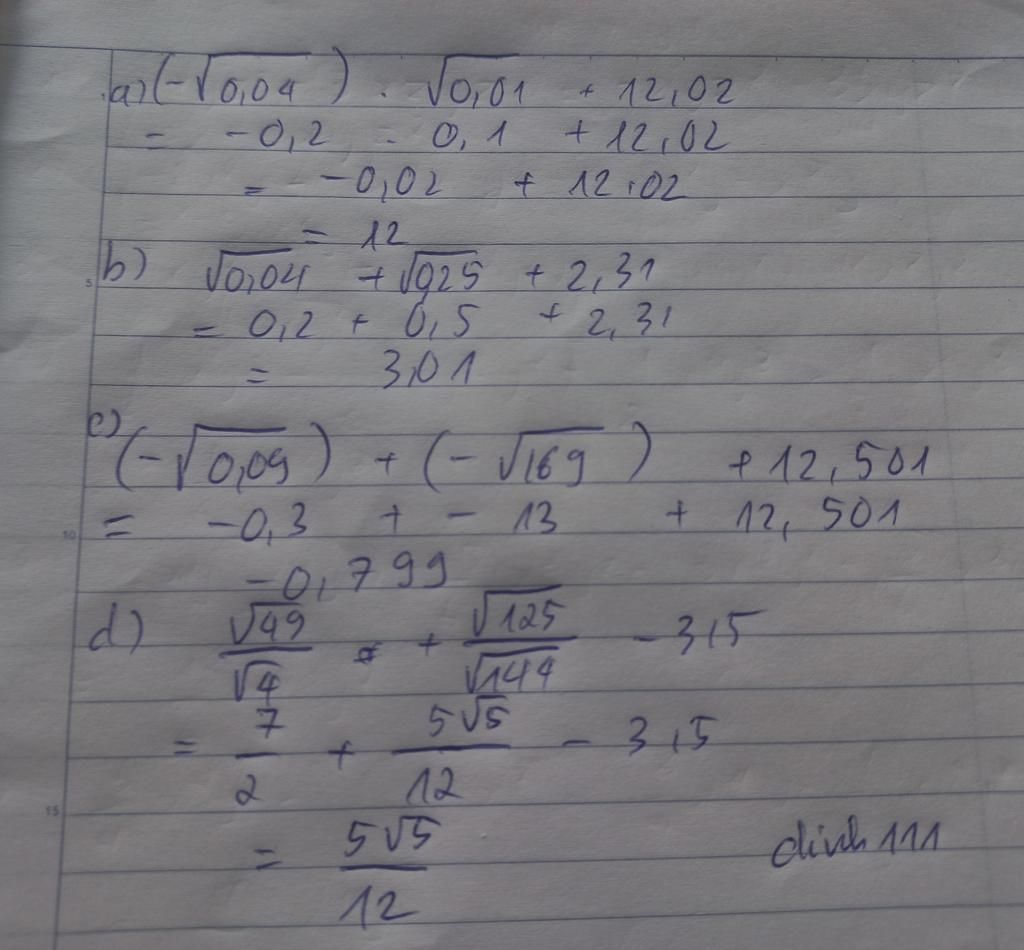 a) (-√0,04) . √0,01 + 12,02
= -0,2 . 0,1 + 12,02
= -0,02 + 12,02
= 12
b) √0,04 + √0,25 + 2,31
= 0,2 + 0,5 + 2,31
= 3,01
c)
(-√0,09) + (-√169) + 12,501
= -0,3 + - 13 + 12,501
-0,799
d) √49/√4 + √125/√144 - 3,5
= 7/2 + 5√5/12 - 3,5
= 5√5/12
dinh111